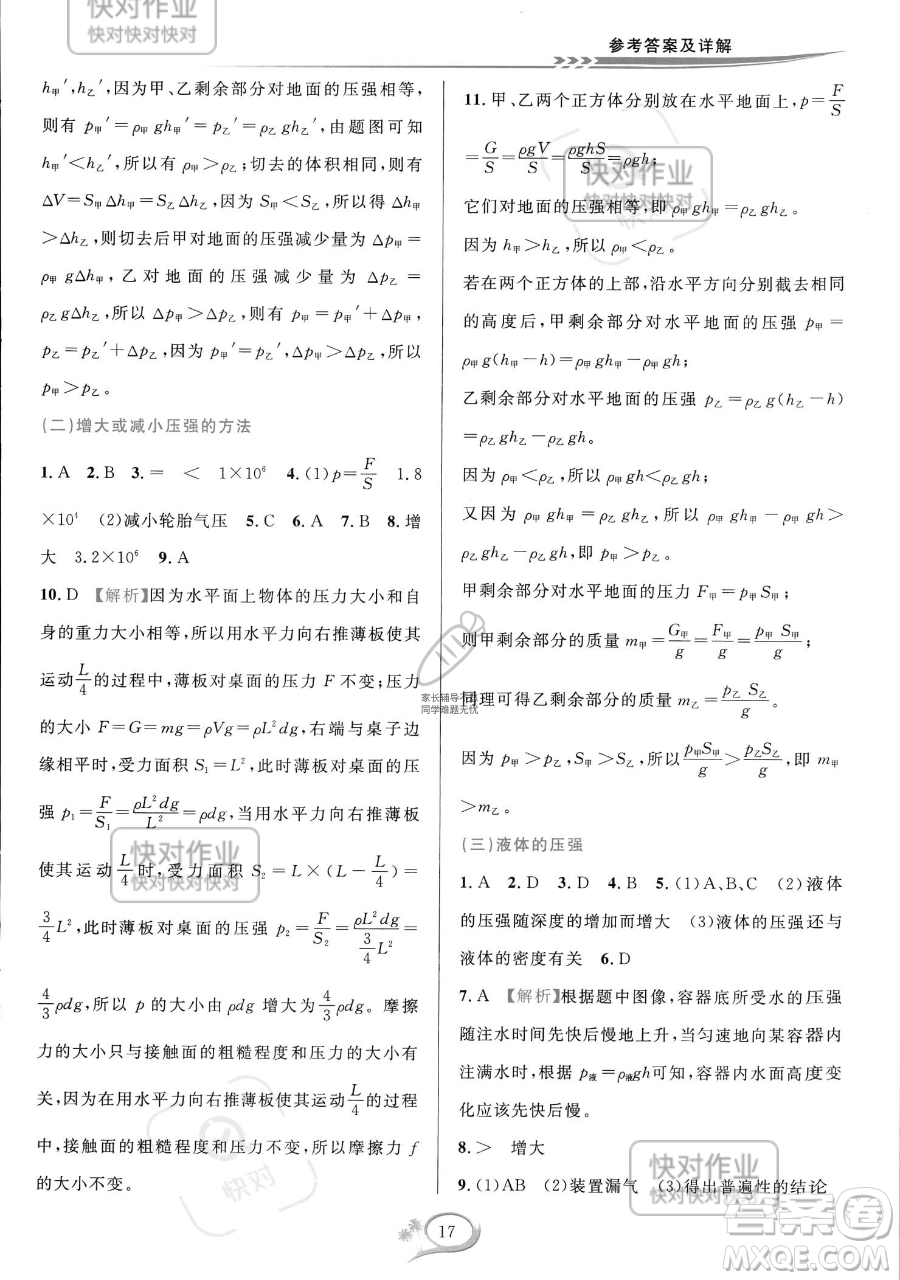 参考答案及详解
h甲′,h乙′,因为甲、乙剩余部分对地面的压强相等,
则有 p甲′=ρ甲gh甲′=p乙′=ρ乙gh乙′,由题图可知
h甲′<h乙′,所以有ρ甲>ρ乙;切去的体积相同,则有
ΔV=S甲Δh甲=S乙Δh乙,因为S甲<S乙,所以得Δh甲
>Δh乙,所以切去后甲对地面的压强减少量为Δp甲=
ρ甲gΔh甲,乙对地面的压强减少量为Δp乙=
ρ乙gΔh乙,所以Δp甲>Δp乙,因为p甲=p甲′+Δp甲,
p乙=p乙′+Δp乙,因为p甲′=p乙′,Δp甲>Δp乙,所以
p甲>p乙。
(二)增大或减小压强的方法
1.A 2.B 3.= < 1×10⁶ 4.(1)p=F/S 1.8
×10⁴ (2)减小轮胎气压 5.C 6.A 7.B 8.增
大 3.2×10⁶ 9.A
10.D 【解析】因为水平面上物体的压力大小和自
身的重力大小相等,所以用水平力向右推薄板使其
运动L/4的过程中,薄板对桌面的压力F不变;压力
的大小F=G=mg=ρVg=ρL²dg,右端与桌子边
缘相平时,受力面积S₁=L²,此时薄板对桌面的压
强p₁=F/S₁=ρL²dg/L²=ρdg,当用水平力向右推薄板
使其运动L/4时,受力面积S₂=L×(L-L/4)=
3/4L²,此时薄板对桌面的压强p₂=F/S₂=ρL²dg/(3/4L²)=
4/3ρdg,所以p的大小由ρdg增大为4/3ρdg。摩擦
力的大小只与接触面的粗糙程度和压力的大小有
关。在用水平力向右推薄板使其运动L/4的过程
中,接触面的粗糙程度和压力不变,所以摩擦力f
的大小不变。
11.甲、乙两个正方体分别放在水平地面上,p=F/S
=G/S=ρgV/S=ρghS/S=ρgh;
它们对地面的压强相等,即ρ甲gh甲=ρ乙gh乙。
因为h甲>h乙,所以ρ甲<ρ乙。
若在两个正方体的上部,沿水平方向分别截去相同
的高度后,甲剩余部分对水平地面的压强p甲=
ρ甲g(h甲-h)=ρ甲gh甲-ρ甲gh;
乙剩余部分对水平地面的压强p乙=ρ乙g(h乙-h)
=ρ乙gh乙-ρ乙gh。
因为ρ甲<ρ乙,所以ρ甲gh<ρ乙gh。
又因为ρ甲gh甲=ρ乙gh乙,所以ρ甲gh甲-ρ甲gh>
ρ乙gh乙-ρ乙gh,即p甲>p乙。
甲剩余部分对水平地面的压力F甲=p甲S甲;
则甲剩余部分的质量m甲=G甲/g=F甲/g=p甲S甲/g;
同理可得乙剩余部分的质量m乙=p乙S乙/g。
因为p甲>p乙,S甲>S乙,所以p甲S甲/g>p乙S乙/g,即m甲
>m乙。
(三)液体的压强
1.A 2.D 3.D 4.B 5.(1)A、B、C (2)液体
的压强随深度的增加而增大 (3)液体的压强还与
液体的密度有关 6.D
7.A 【解析】根据题中图像,容器底所受水的压强
随注水时间先快后慢地上升,当匀速地向某容器内
注满水时,根据p液=ρ液gh可知,容器内水面高度变
化应该先快后慢。
8.> 增大
9.(1)AB (2)装置漏气 (3)得出普遍性的结论
17
快对作业
快对快对快对
快对作业
快对快对快对
快对作业
快对快对快对
快对作业
快对快对快对
快对
家长辅导
同学难题无忧
答案圈
MXQE.COM